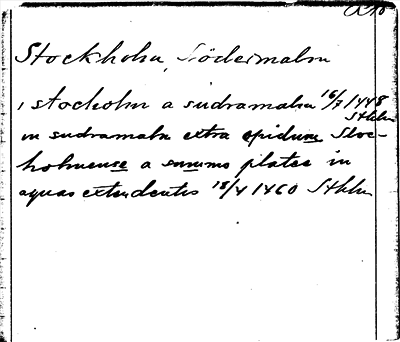 Stockholm, Södermalm
i stocholm a sudramalm 16/7 1448
Sthlm
in sudramalm extra opidum Stoc-
holmense a summo platee in
aquas extendentis 18/4 1460 Sthlm